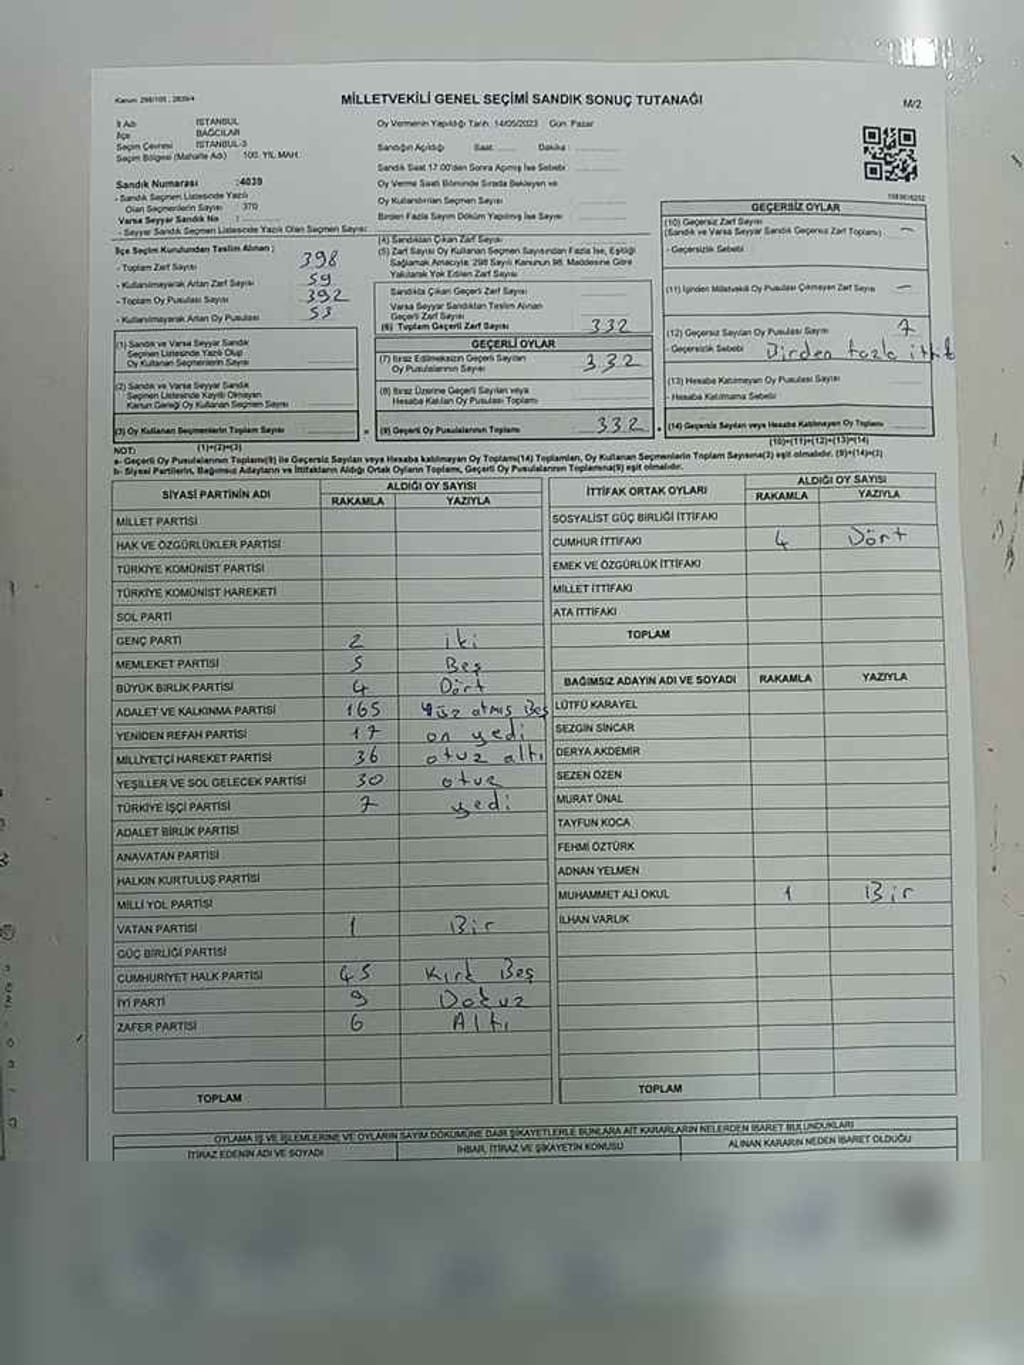 Kanun: 298/105 , 2839/4
MİLLETVEKİLİ GENEL SEÇİMİ SANDIK SONUÇ TUTANAĞI
M/2
İl Adı İSTANBUL
İlçe BAĞCILAR
Seçim Çevresi İSTANBUL-3
Seçim Bölgesi (Mahalle Adı) 100. YIL MAH.
Oy Vermenin Yapıldığı Tarih: 14/05/2023 Gün: Pazar
Sandığın Açıldığı Saat: Dakika:
Sandık Saat 17:00'den Sonra Açılmış İse Sebebi
Oy Verme Saati Bitiminde Sırada Bekleyen ve
Oy Kullandırılan Seçmen Sayısı
Birden Fazla Sayım Döküm Yapılmış İse Sayısı
Sandık Numarası :4039
- Sandık Seçmen Listesinde Yazılı
Olan Seçmenlerin Sayısı 370
Varsa Seyyar Sandık No :
- Seyyar Sandık Seçmen Listesinde Yazılı Olan Seçmen Sayısı:
İlçe Seçim Kurulundan Teslim Alınan ;
- Toplam Zarf Sayısı 398
- Kullanılmayarak Artan Zarf Sayısı 59
- Toplam Oy Pusulası Sayısı 392
- Kullanılmayarak Artan Oy Pusulası 53
(1) Sandık ve Varsa Seyyar Sandık
Seçmen Listesinde Yazılı Olup
Oy Kullanan Seçmenlerin Sayısı
(2) Sandık ve Varsa Seyyar Sandık
Seçmen Listesinde Kayıtlı Olmayan
Kanun Gereği Oy Kullanan Seçmen Sayısı
(3) Oy Kullanan Seçmenlerin Toplam Sayısı
(1)+(2)=(3)
(4) Sandıktan Çıkan Zarf Sayısı
(5) Zarf Sayısı Oy Kullanan Seçmen Sayısından Fazla İse, Eşitliği
Sağlamak Amacıyla, 298 Sayılı Kanunun 98. Maddesine Göre
Yakılarak Yok Edilen Zarf Sayısı
Sandıkta Çıkan Geçerli Zarf Sayısı
Varsa Seyyar Sandıktan Teslim Alınan
Geçerli Zarf Sayısı
(6) Toplam Geçerli Zarf Sayısı 332
GEÇERLİ OYLAR
(7) İtiraz Edilmeksizin Geçerli Sayılan
Oy Pusulalarının Sayısı 332
(8) İtiraz Üzerine Geçerli Sayılan veya
Hesaba Katılan Oy Pusulası Toplamı
(9) Geçerli Oy Pusulalarının Toplamı 332
GEÇERSİZ OYLAR
(10) Geçersiz Zarf Sayısı
(Sandık ve Varsa Seyyar Sandık Geçersiz Zarf Toplamı) —
- Geçersizlik Sebebi
(11) İçinden Milletvekili Oy Pusulası Çıkmayan Zarf Sayısı —
(12) Geçersiz Sayılan Oy Pusulası Sayısı 7
- Geçersizlik Sebebi Birden fazla ittifak
(13) Hesaba Katılmayan Oy Pusulası Sayısı
- Hesaba Katılmama Sebebi
(14) Geçersiz Sayılan veya Hesaba Katılmayan Oy Toplamı
(10)+(11)+(12)+(13)=(14)
NOT:
a- Geçerli Oy Pusulalarının Toplamı(9) ile Geçersiz Sayılan veya Hesaba katılmayan Oy Toplamı(14) Toplamları, Oy Kullanan Seçmenlerin Toplam Sayısına(3) eşit olmalıdır. (9)+(14)=(3)
b- Siyasi Partilerin, Bağımsız Adayların ve İttifakların Aldığı Ortak Oyların Toplamı, Geçerli Oy Pusulalarının Toplamına(9) eşit olmalıdır.
SİYASİ PARTİNİN ADI ALDIĞI OY SAYISI
RAKAMLA YAZIYLA
MİLLET PARTİSİ
HAK VE ÖZGÜRLÜKLER PARTİSİ
TÜRKİYE KOMÜNİST PARTİSİ
TÜRKİYE KOMÜNİST HAREKETİ
SOL PARTİ
GENÇ PARTİ 2 iki
MEMLEKET PARTİSİ 5 Beş
BÜYÜK BİRLİK PARTİSİ 4 Dört
ADALET VE KALKINMA PARTİSİ 165 Yüz atmış Beş
YENİDEN REFAH PARTİSİ 17 on yedi
MİLLİYETÇİ HAREKET PARTİSİ 36 otuz altı
YEŞİLLER VE SOL GELECEK PARTİSİ 30 otuz
TÜRKİYE İŞÇİ PARTİSİ 7 yedi
ADALET BİRLİK PARTİSİ
ANAVATAN PARTİSİ
HALKIN KURTULUŞ PARTİSİ
MİLLİ YOL PARTİSİ
VATAN PARTİSİ 1 Bir
GÜÇ BİRLİĞİ PARTİSİ
CUMHURİYET HALK PARTİSİ 45 Kırk Beş
İYİ PARTİ 9 Dokuz
ZAFER PARTİSİ 6 Altı
TOPLAM
İTTİFAK ORTAK OYLARI ALDIĞI OY SAYISI
RAKAMLA YAZIYLA
SOSYALİST GÜÇ BİRLİĞİ İTTİFAKI
CUMHUR İTTİFAKI 4 Dört
EMEK VE ÖZGÜRLÜK İTTİFAKI
MİLLET İTTİFAKI
ATA İTTİFAKI
TOPLAM
BAĞIMSIZ ADAYIN ADI VE SOYADI RAKAMLA YAZIYLA
LÜTFÜ KARAYEL
SEZGİN SİNCAR
DERYA AKDEMİR
SEZEN ÖZEN
MURAT ÜNAL
TAYFUN KOCA
FEHMİ ÖZTÜRK
ADNAN YELMEN
MUHAMMET ALİ OKUL 1 Bir
İLHAN VARLIK
TOPLAM
OYLAMA İŞ VE İŞLEMLERİNE VE OYLARIN SAYIM DÖKÜMÜNE DAİR ŞİKAYETLERLE BUNLARA AİT KARARLARIN NELERDEN İBARET BULUNDUKLARI
İTİRAZ EDENİN ADI VE SOYADI İHBAR, İTİRAZ VE ŞİKAYETİN KONUSU ALINAN KARARIN NEDEN İBARET OLDUĞU